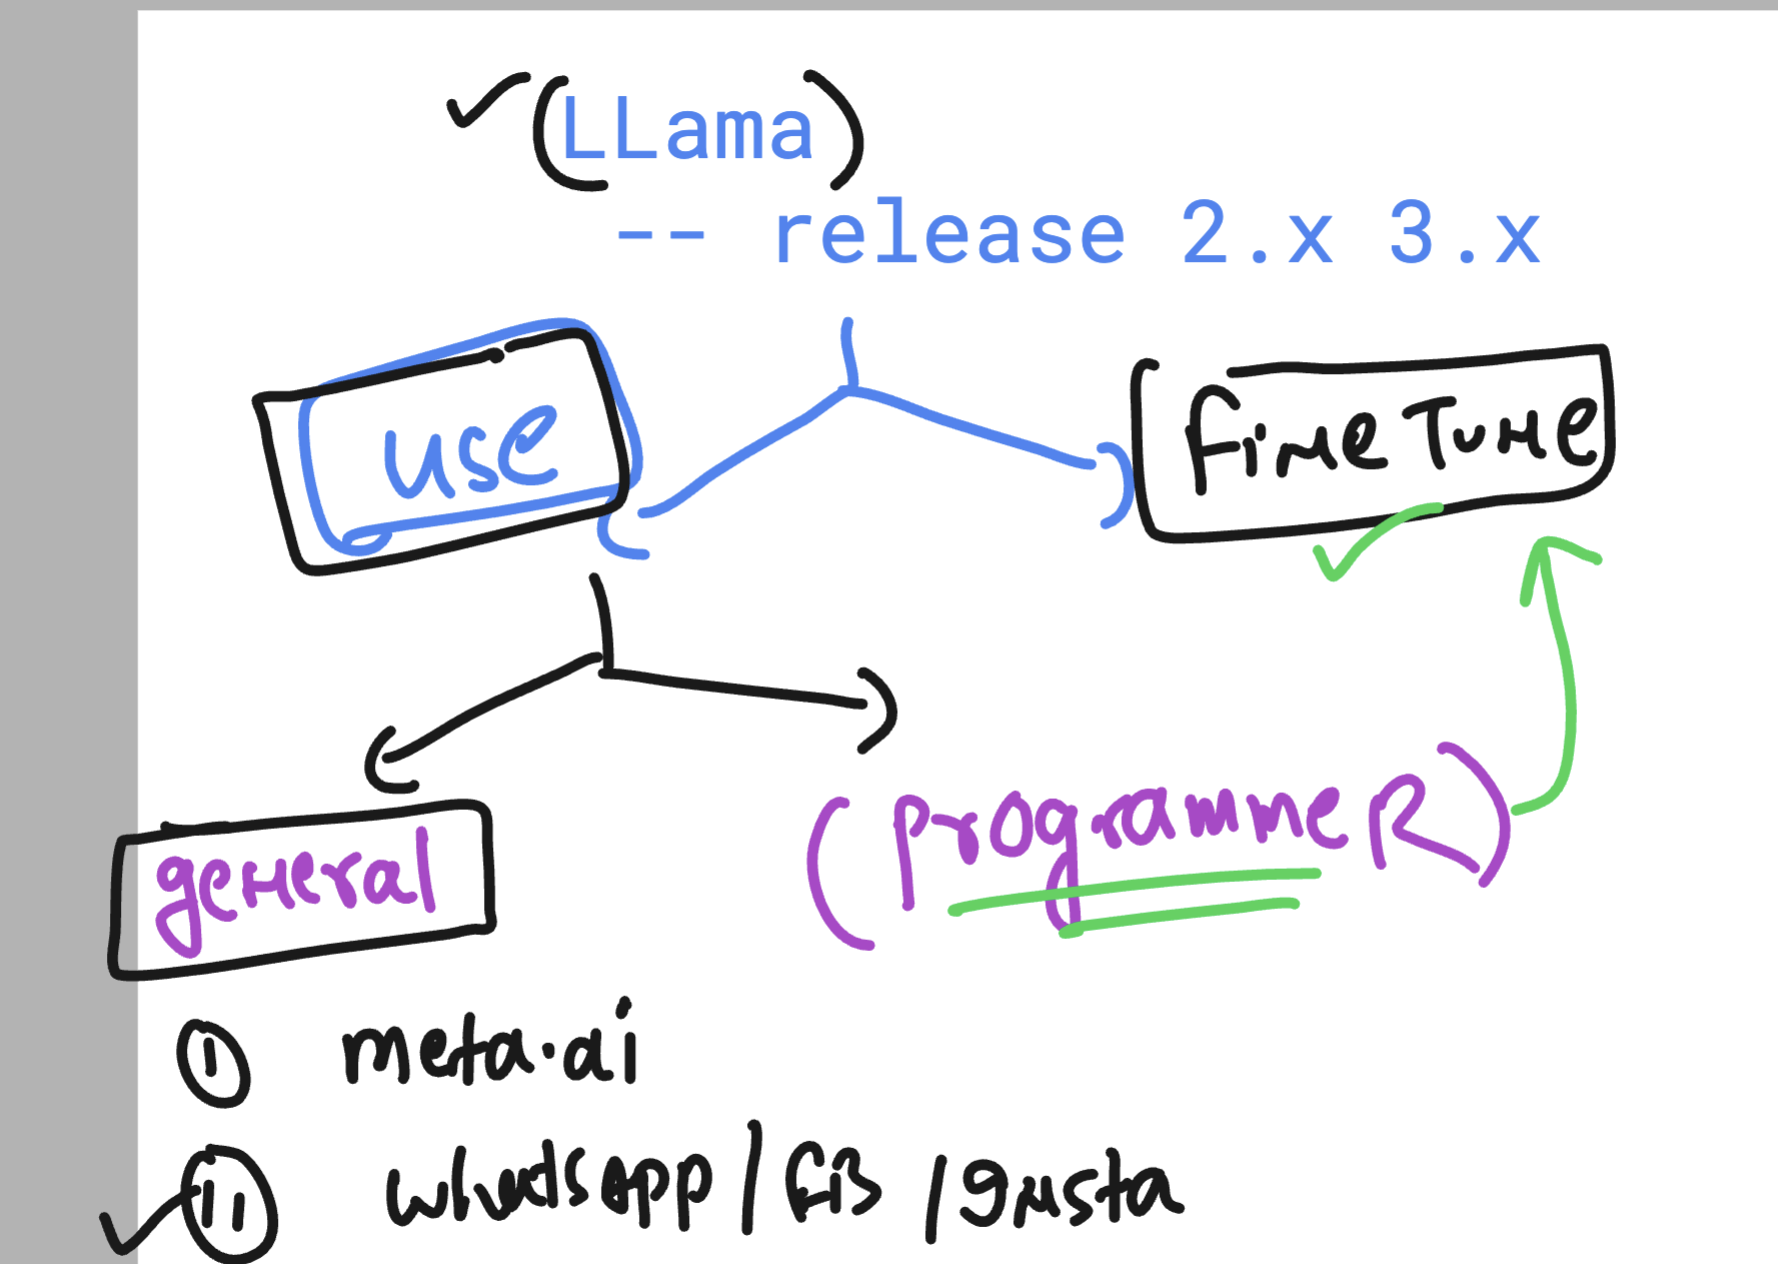 (LLama)
-- release 2.x 3.x
use
fine Tune
general
(programmeR)
① meta.ai
⑪ whatsapp / FB / Insta